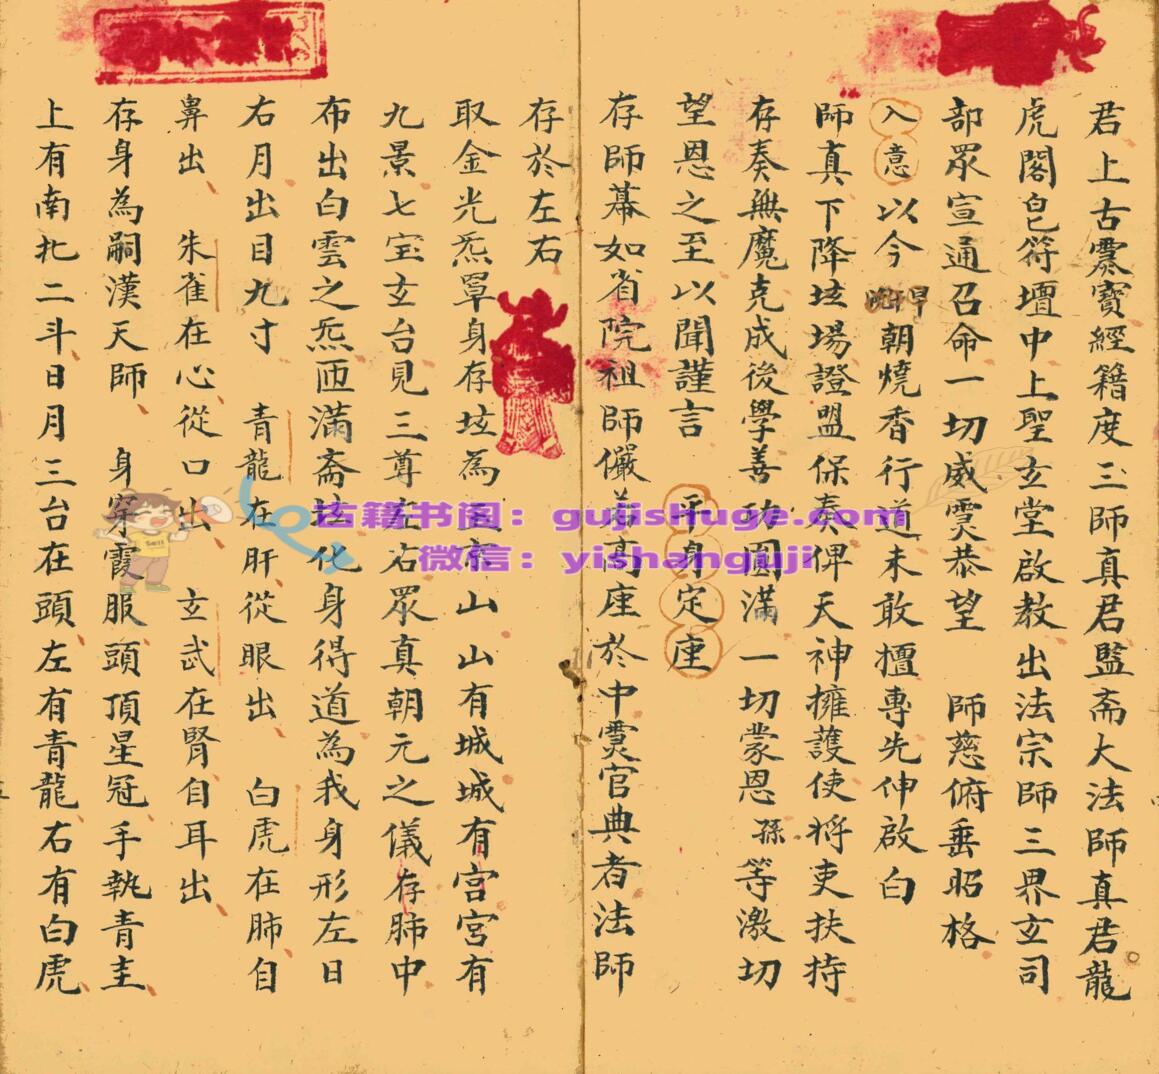 君上古靈寶經籍度三師真君監斋大法師真君龍
虎閣皀符壇中上聖玄堂啟教出法宗師三界玄司
部眾宣通召命一切威灵恭望 師慈俯垂昭格
入意以今早晚朝燒香行道未敢擅專先伸啟白
師真下降坛場證盟保奏俾天神擁護使將吏扶持
存奏無魔克成後學善功圓滿一切蒙恩孫等激切
望恩之至以聞謹言 平身定座
存師幕如省院祖師儼若高座於中灵官典者法師
存於左右
取金光炁罩身存坛為玉京山山有城城有宮宮有
九景七宝玄台見三尊左右眾真朝元之儀存肺中
布出白雲之炁匝滿斋坛化身得道為我身形左日
右月出目九寸 青龍在肝從眼出 白虎在肺自
鼻出 朱雀在心從口出 玄武在腎自耳出
存身為嗣漢天師 身穿霞服頭頂星冠手執青圭
上有南北二斗日月三台在頭左有青龍右有白虎
古籍书阁：gujishuge.com
微信：yishanguji